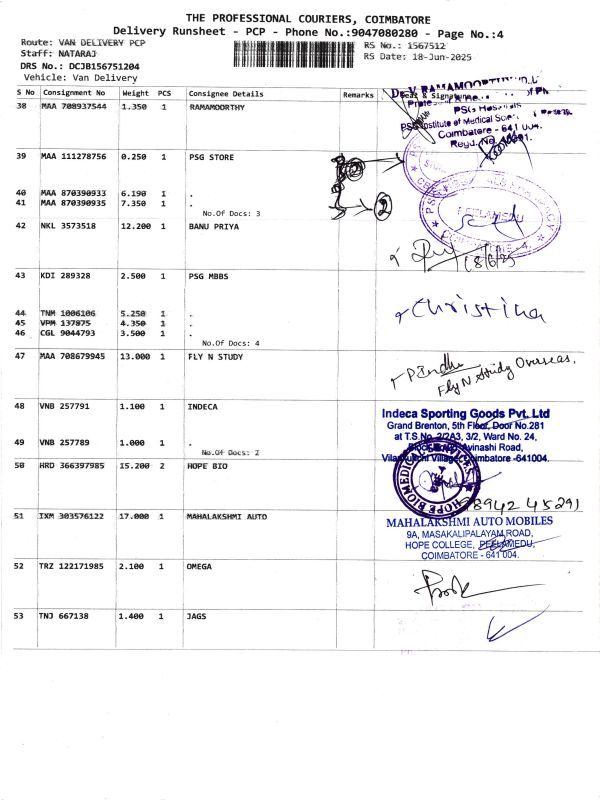 THE PROFESSIONAL COURIERS, COIMBATORE
Delivery Runsheet - PCP - Phone No.:9047080280 - Page No.:4
Route: VAN DELIVERY PCP
RS No.: 1567512
Staff: NATARAJ
RS Date: 18-Jun-2025
DRS No.: DCJB156751204
Vehicle: Van Delivery
S No Consignment No Weight PCS Consignee Details Remarks Seal & Signature
38 MAA 708937544 1.350 1 RAMAMOORTHY
Dr. V. RAMAMOORTHY
PSG Hospitals
PSG Institute of Medical Sci
Coimbatore - 641 004.
39 MAA 111278756 0.250 1 PSG STORE
2
40 MAA 870390933 6.190 1 .
41 MAA 870390935 7.350 1 .
No.Of Docs: 3
2
PEELAMEDU
42 NKL 3573518 12.200 1 BANU PRIYA
18/6/25
43 KDI 289328 2.500 1 PSG MBBS
Christina
44 TNM 1006106 5.250 1 .
45 VPM 137875 4.350 1 .
46 CGL 9044793 3.500 1 .
No.Of Docs: 4
47 MAA 708679945 13.000 1 FLY N STUDY
Fly N Study Overseas.
48 VNB 257791 1.100 1 INDECA
Indeca Sporting Goods Pvt. Ltd
Grand Brenton, 5th Floor, Door No.281
at T.S.No.2/2A3, 3/2, Ward No. 24,
Avinashi Road,
Village, Coimbatore -641004.
49 VNB 257789 1.000 1 .
No.Of Docs: 2
50 HRD 366397985 15.200 2 HOPE BIO
HOPE BIOMEDICAL SERVICES
8942 45291
51 IXM 303576122 17.000 1 MAHALAKSHMI AUTO
MAHALAKSHMI AUTO MOBILES
9A, MASAKALIPALAYAM ROAD,
HOPE COLLEGE, PEELAMEDU,
COIMBATORE - 641 004.
52 TRZ 122171985 2.100 1 OMEGA
53 TNJ 667138 1.400 1 JAGS